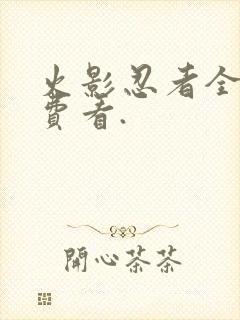 火影忍者全
費看.
開心茶茶